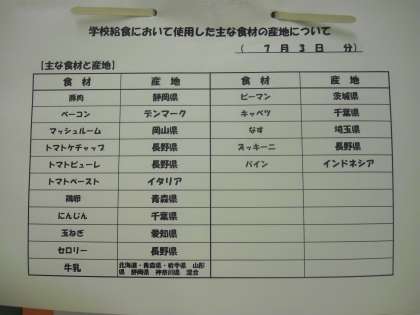 学校給食において使用した主な食材の産地について
( 7 月 3 日 分)
【主な食材と産地】
食 材 産 地 食 材 産 地
豚肉 静岡県 ピーマン 茨城県
ベーコン デンマーク キャベツ 千葉県
マッシュルーム 岡山県 なす 埼玉県
トマトケチャップ 長野県 ズッキーニ 長野県
トマトピューレ 長野県 パイン インドネシア
トマトペースト イタリア
鶏卵 青森県
にんじん 千葉県
玉ねぎ 愛知県
セロリー 長野県
牛乳 北海道・青森県・岩手県 山形
県 静岡県 神奈川県 混合